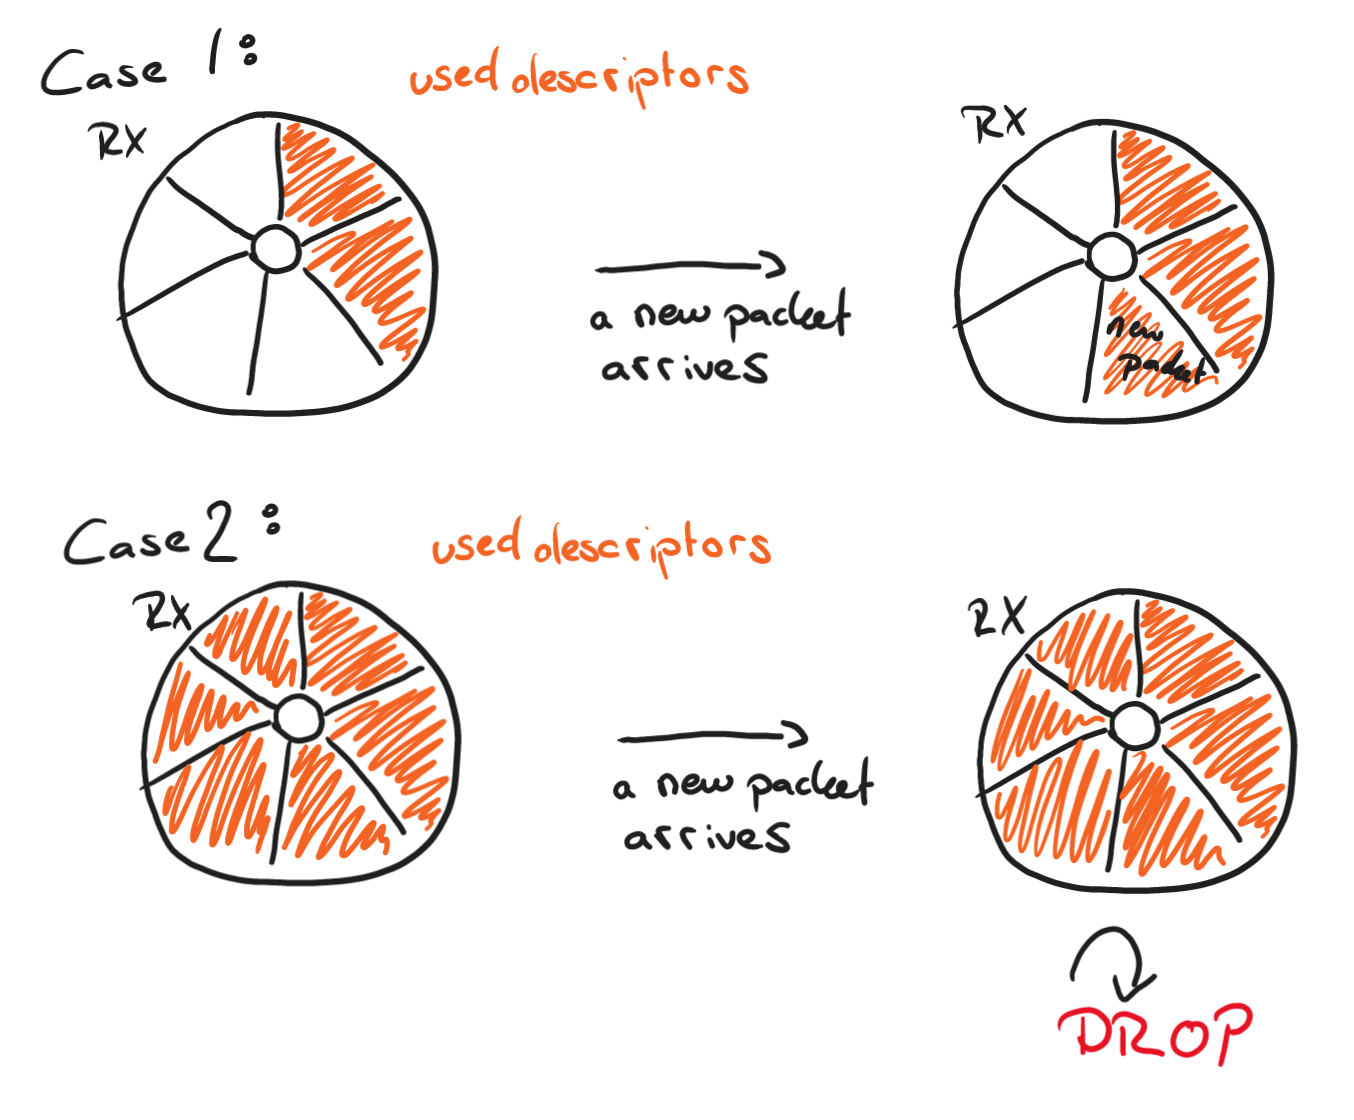 Case 1:
used descriptors
RX
RX
a new packet
arrives
new
packet
Case 2:
used descriptors
RX
RX
a new packet
arrives
DROP